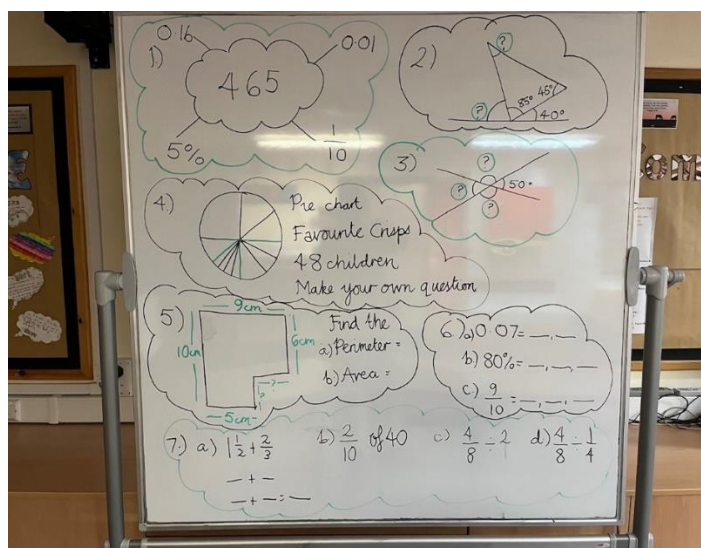 0.16
0.01
1)
465
5%
1/10
2)
?
85° 45°
? 40°
3)
?
? 50°
?
4)
Pie chart
Favourite Crisps
48 children
Make your own question
5)
9cm
10cm
6cm
?
?
5cm
Find the
a) Perimeter =
b) Area =
6) a) 0.07 = __, __
b) 80% = __, __, __
c) 9/10 = __, __, __
7) a) 1 1/2 + 2/3
__ + __
__ + __ = __
b) 2/10 of 40
c) 4/8 ÷ 2
d) 4/8 ÷ 1/4